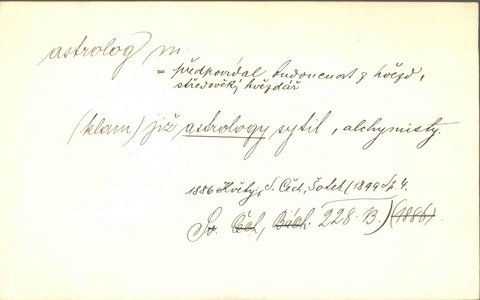 astrolog m.
= předpovídal budoucnost z hvězd,
středověký hvězdář
(klam) již astrology sytil, alchymisty.
1886 Květy, S. Čech, Šotek (1899) s. 4.
Sv. Čech, Bách. 228. B.) (1886).